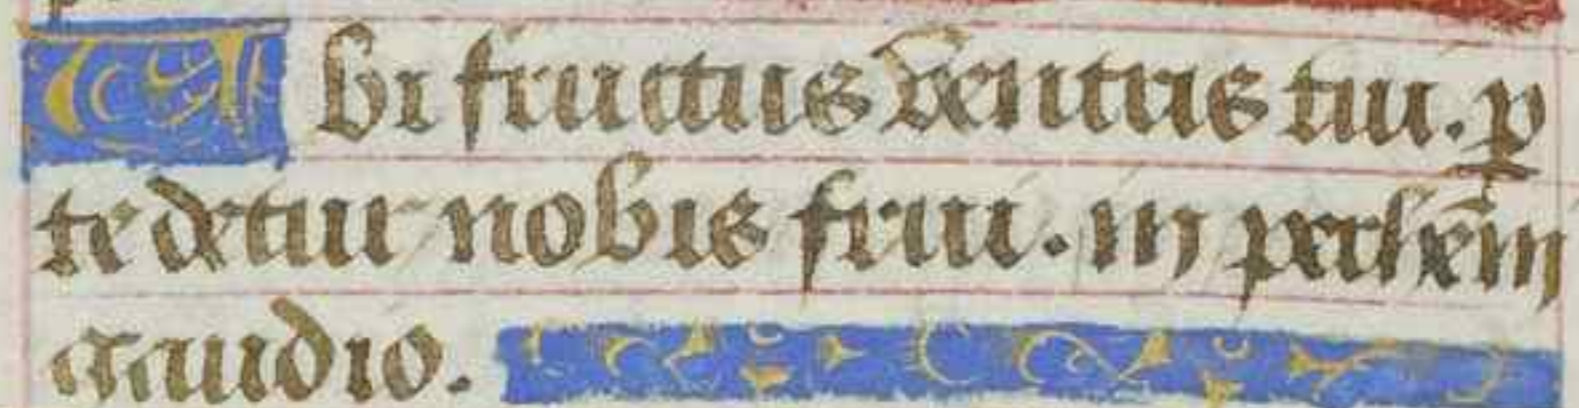 Ubi fructus ventris tui. ꝑ
te detur nobis frui. in perhēni
gaudio.